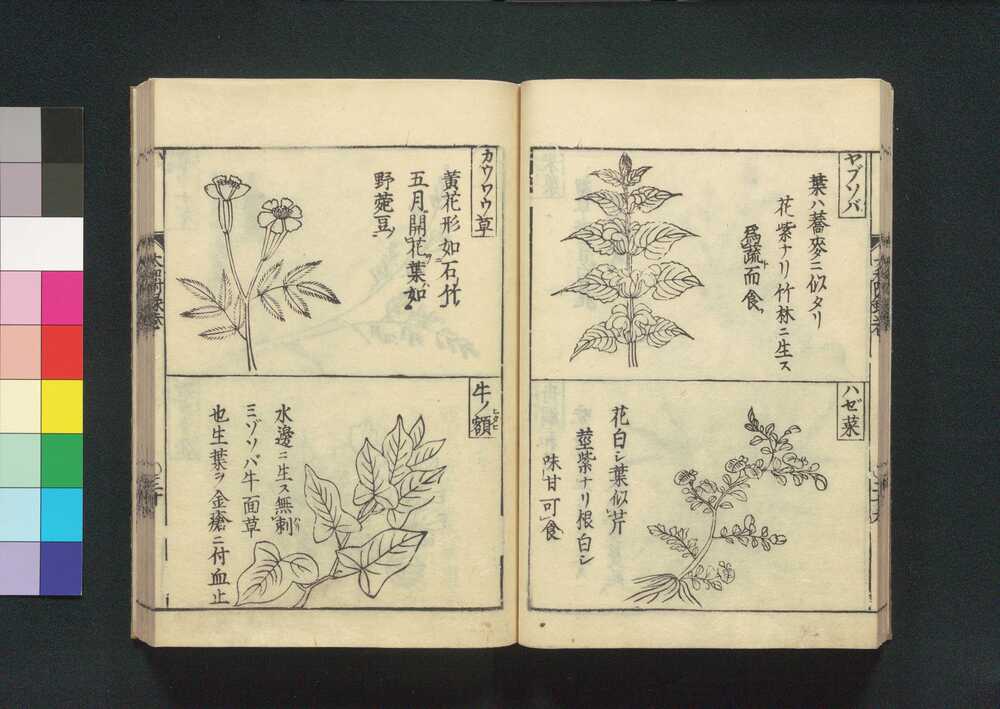 ヤブソバ
葉ハ蕎麥ニ似タリ
花紫ナリ竹林ニ生ス
為蔬而食
ハゼ菜
花白シ葉似芹
莖紫ナリ根白シ
味甘可食
カウワウ草
黄花形如石竹
五月開花葉如
野菀豆
牛ノ額
ヒタヒ
水邊ニ生ス無刺
ミゾソバ牛面草
也生葉ヲ金瘡ニ付血止